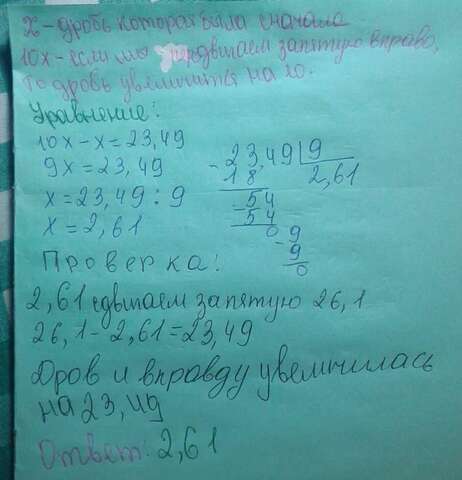 X - дробь которая была сначала
10x - если мы передвигаем запятую вправо,
то дробь увеличится на 10.
Уравнение:
10x - x = 23,49
9x = 23,49
x = 23,49 : 9
x = 2,61
23,49 9
- 18 2,61
- 54
54
0 9
- 9
0
Проверка:
2,61 сдвигаем запятую 26,1
26,1 - 2,61 = 23,49
Дроб и вправду увеличилась
на 23,49
Ответ: 2,61